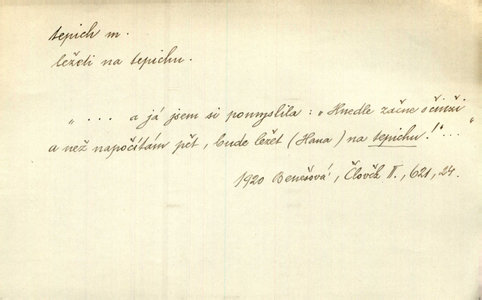 tepich m.
ležeti na tepichu.
„ . . . a já jsem si pomyslila : „Hnedle začne o činži
a než napočítám pět, bude ležet (Hana) na tepichu!"...“
1920 Benešová, Člověk II., 621, 24.